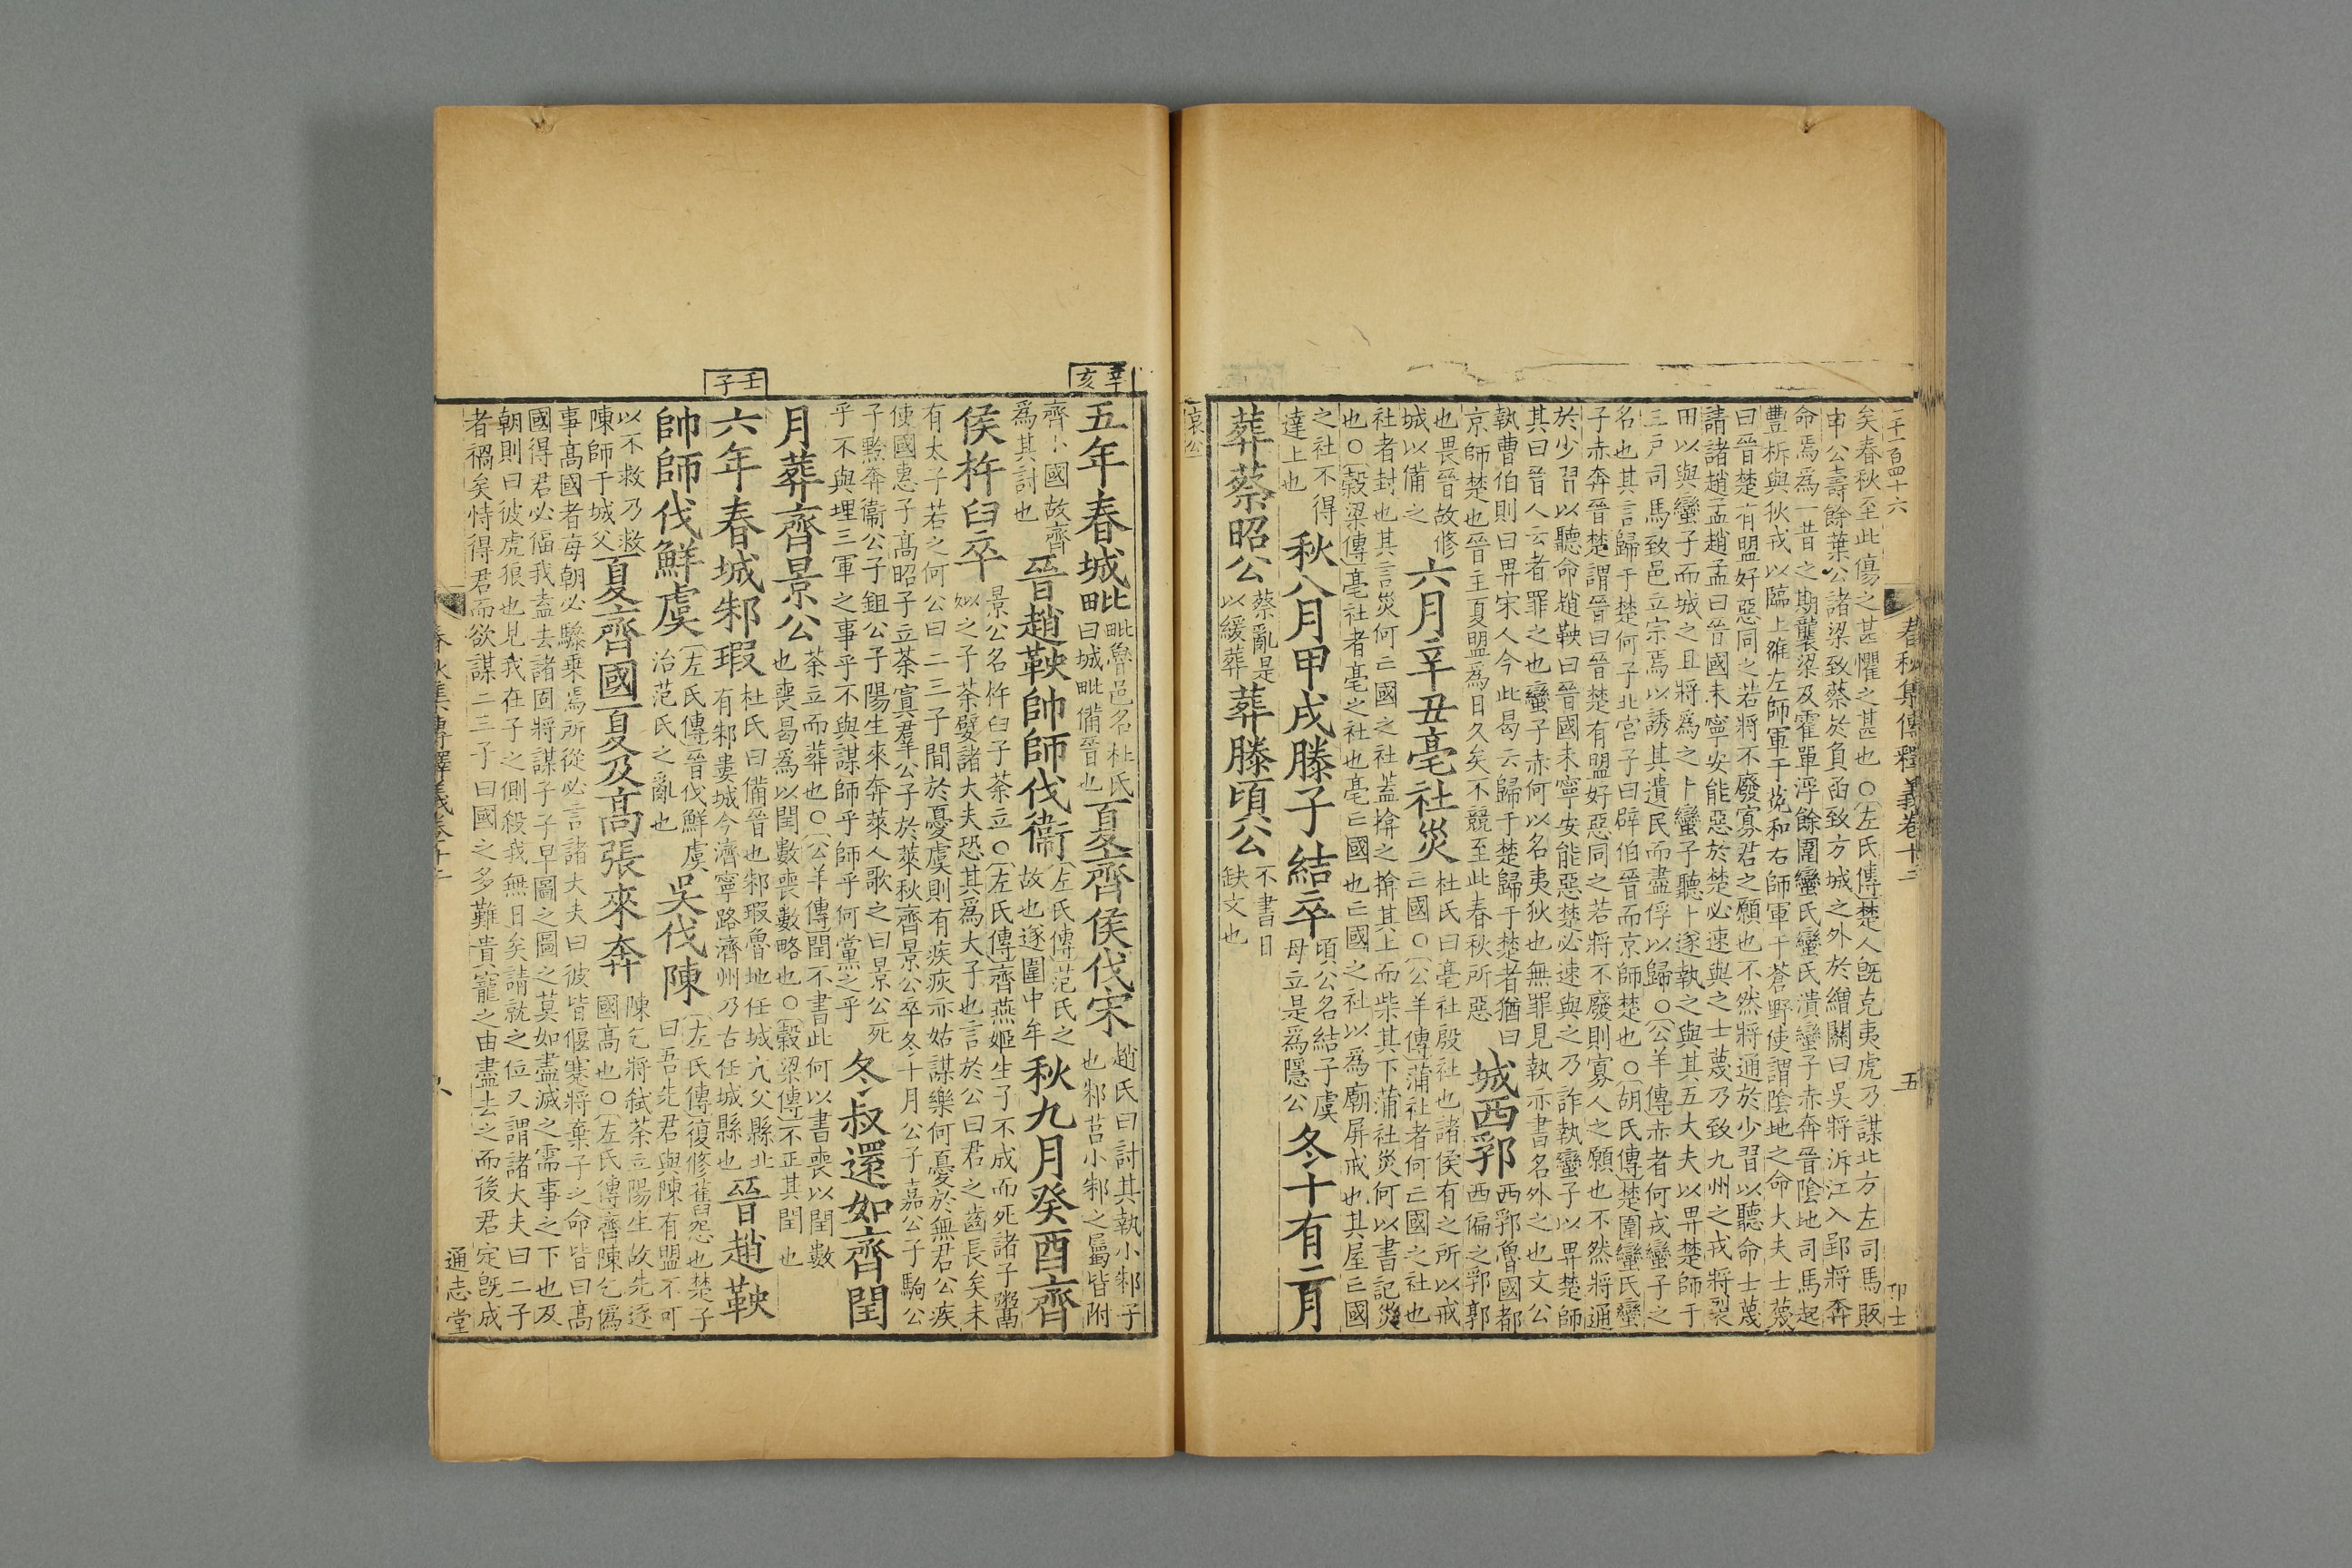 二千一百四十六
春秋集傳釋義卷十二
五
卬士
矣春秋至此傷之甚懼之甚也○左氏傳楚人旣克夷虎乃謀北方左司馬販
申公壽餘葉公諸梁致蔡於負函致方城之外於繒關曰吳將泝江入郢將奔
命焉爲一昔之期襲梁及霍單浮餘圍蠻氏蠻氏潰蠻子赤奔晉陰地司馬起
豐析與狄戎以臨上雒左師軍于菟和右師軍于蒼野使謂陰地之命大夫士蔑
曰晉楚有盟好惡同之若將不廢寡君之願也不然將通於少習以聽命士蔑
請諸趙孟趙孟曰晉國未寧安能惡於楚必速與之士蔑乃致九州之戎將裂
田以與蠻子而城之且將爲之卜蠻子聽卜遂執之與其五大夫以畀楚師于
三戶司馬致邑立宗焉以誘其遺民而盡俘以歸○公羊傳赤者何戎蠻子之
名也其言歸于楚何子北宮子曰辟伯晉而京師楚也○胡氏傳楚圍蠻氏蠻
子赤奔晉楚謂晉曰晉楚有盟好惡同之若將不廢則寡人之願也不然將通
於少習以聽命趙鞅曰晉國未寧安能惡楚必速與之乃詐執蠻子以畀楚師
其曰晉人云者罪之也蠻子赤何以名夷狄也無罪見執亦書名外之也文公
執曹伯則曰畀宋人今此曷云歸于楚歸于楚者猶曰
京師楚也晉主夏盟爲日久矣不競至此春秋所惡
城西郛
西郛魯國都
西偏之郛郭
也畏晉故修
城以備之
六月辛丑亳社災
杜氏曰亳社殷社也諸侯有之所以戒
亡國○公羊傳蒲社者何亡國之社也
社者封也其言災何亡國之社蓋揜之揜其上而柴其下蒲社災何以書記災
也○穀梁傳亳社者亳之社也亳亡國也亡國之社以爲廟屏戒也其屋亡國
之社不得
達上也
秋八月甲戌滕子結卒
頃公名結子虞
母立是爲隱公
冬十有二月
葬蔡昭公
蔡亂是
以緩葬
葬滕頃公
不書日
缺文也
哀公
辛亥
五年春城毗
毗魯邑名杜氏
曰城毗備晉也
夏齊侯伐宋
趙氏曰討其執小邾子
也邾莒小邾之屬皆附
齊小國故齊
爲其討也
晉趙鞅帥師伐衞
左氏傳范氏之
故也遂圍中牟
秋九月癸酉齊
侯杵臼卒
景公名杵臼子荼立○左氏傳齊燕姬生子不成而死諸子鬻
姒之子荼嬖諸大夫恐其爲大子也言於公曰君之齒長矣未
有太子若之何公曰二三子間於憂虞則有疾疢亦姑謀樂何憂於無君公疾
使國惠子高昭子立荼寘羣公子於萊秋齊景公卒冬十月公子嘉公子駒公
子黔奔衞公子鉏公子陽生來奔萊人歌之曰景公死
乎不與埋三軍之事乎不與謀師乎師乎何黨之乎
冬叔還如齊閏
月葬齊景公
荼立而葬也○公羊傳閏不書此何以書喪以閏數
也喪曷爲以閏數喪數略也○穀梁傳不正其閏也
壬子
六年春城邾瑕
杜氏曰備晉也邾瑕魯地任城亢父縣北
有邾婁城今濟寧路濟州乃古任城縣也
晉趙鞅
帥師伐鮮虞
左氏傳晉伐鮮虞
治范氏之亂也
吳伐陳
左氏傳復修舊怨也楚子
曰吾先君與陳有盟不可
以不救乃救
陳師于城父
夏齊國夏及高張來奔
陳乞將弑荼立陽生故先逐
國高也○左氏傳齊陳乞僞
事高國者每朝必驂乘焉所從必言諸大夫曰彼皆偃蹇將棄子之命皆曰高
國得君必偪我盍去諸固將謀子子早圖之圖之莫如盡滅之需事之下也及
朝則曰彼虎狼也見我在子之側殺我無日矣請就之位又謂諸大夫曰二子
者禍矣恃得君而欲謀二三子曰國之多難貴寵之由盡去之而後君定旣成
春秋集傳釋義卷十二
通志堂